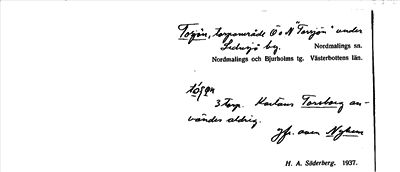 Torsjön, torpområde Ö o N "Torsjön" under
Ledusjö by. Nordmalings sn.
Nordmalings och Bjurholms tg. Västerbottens län.
3 torp. Kartans Torsborg an-
vändes aldrig.
Jfr. även Nyhem
H. A. Söderberg. 1937.